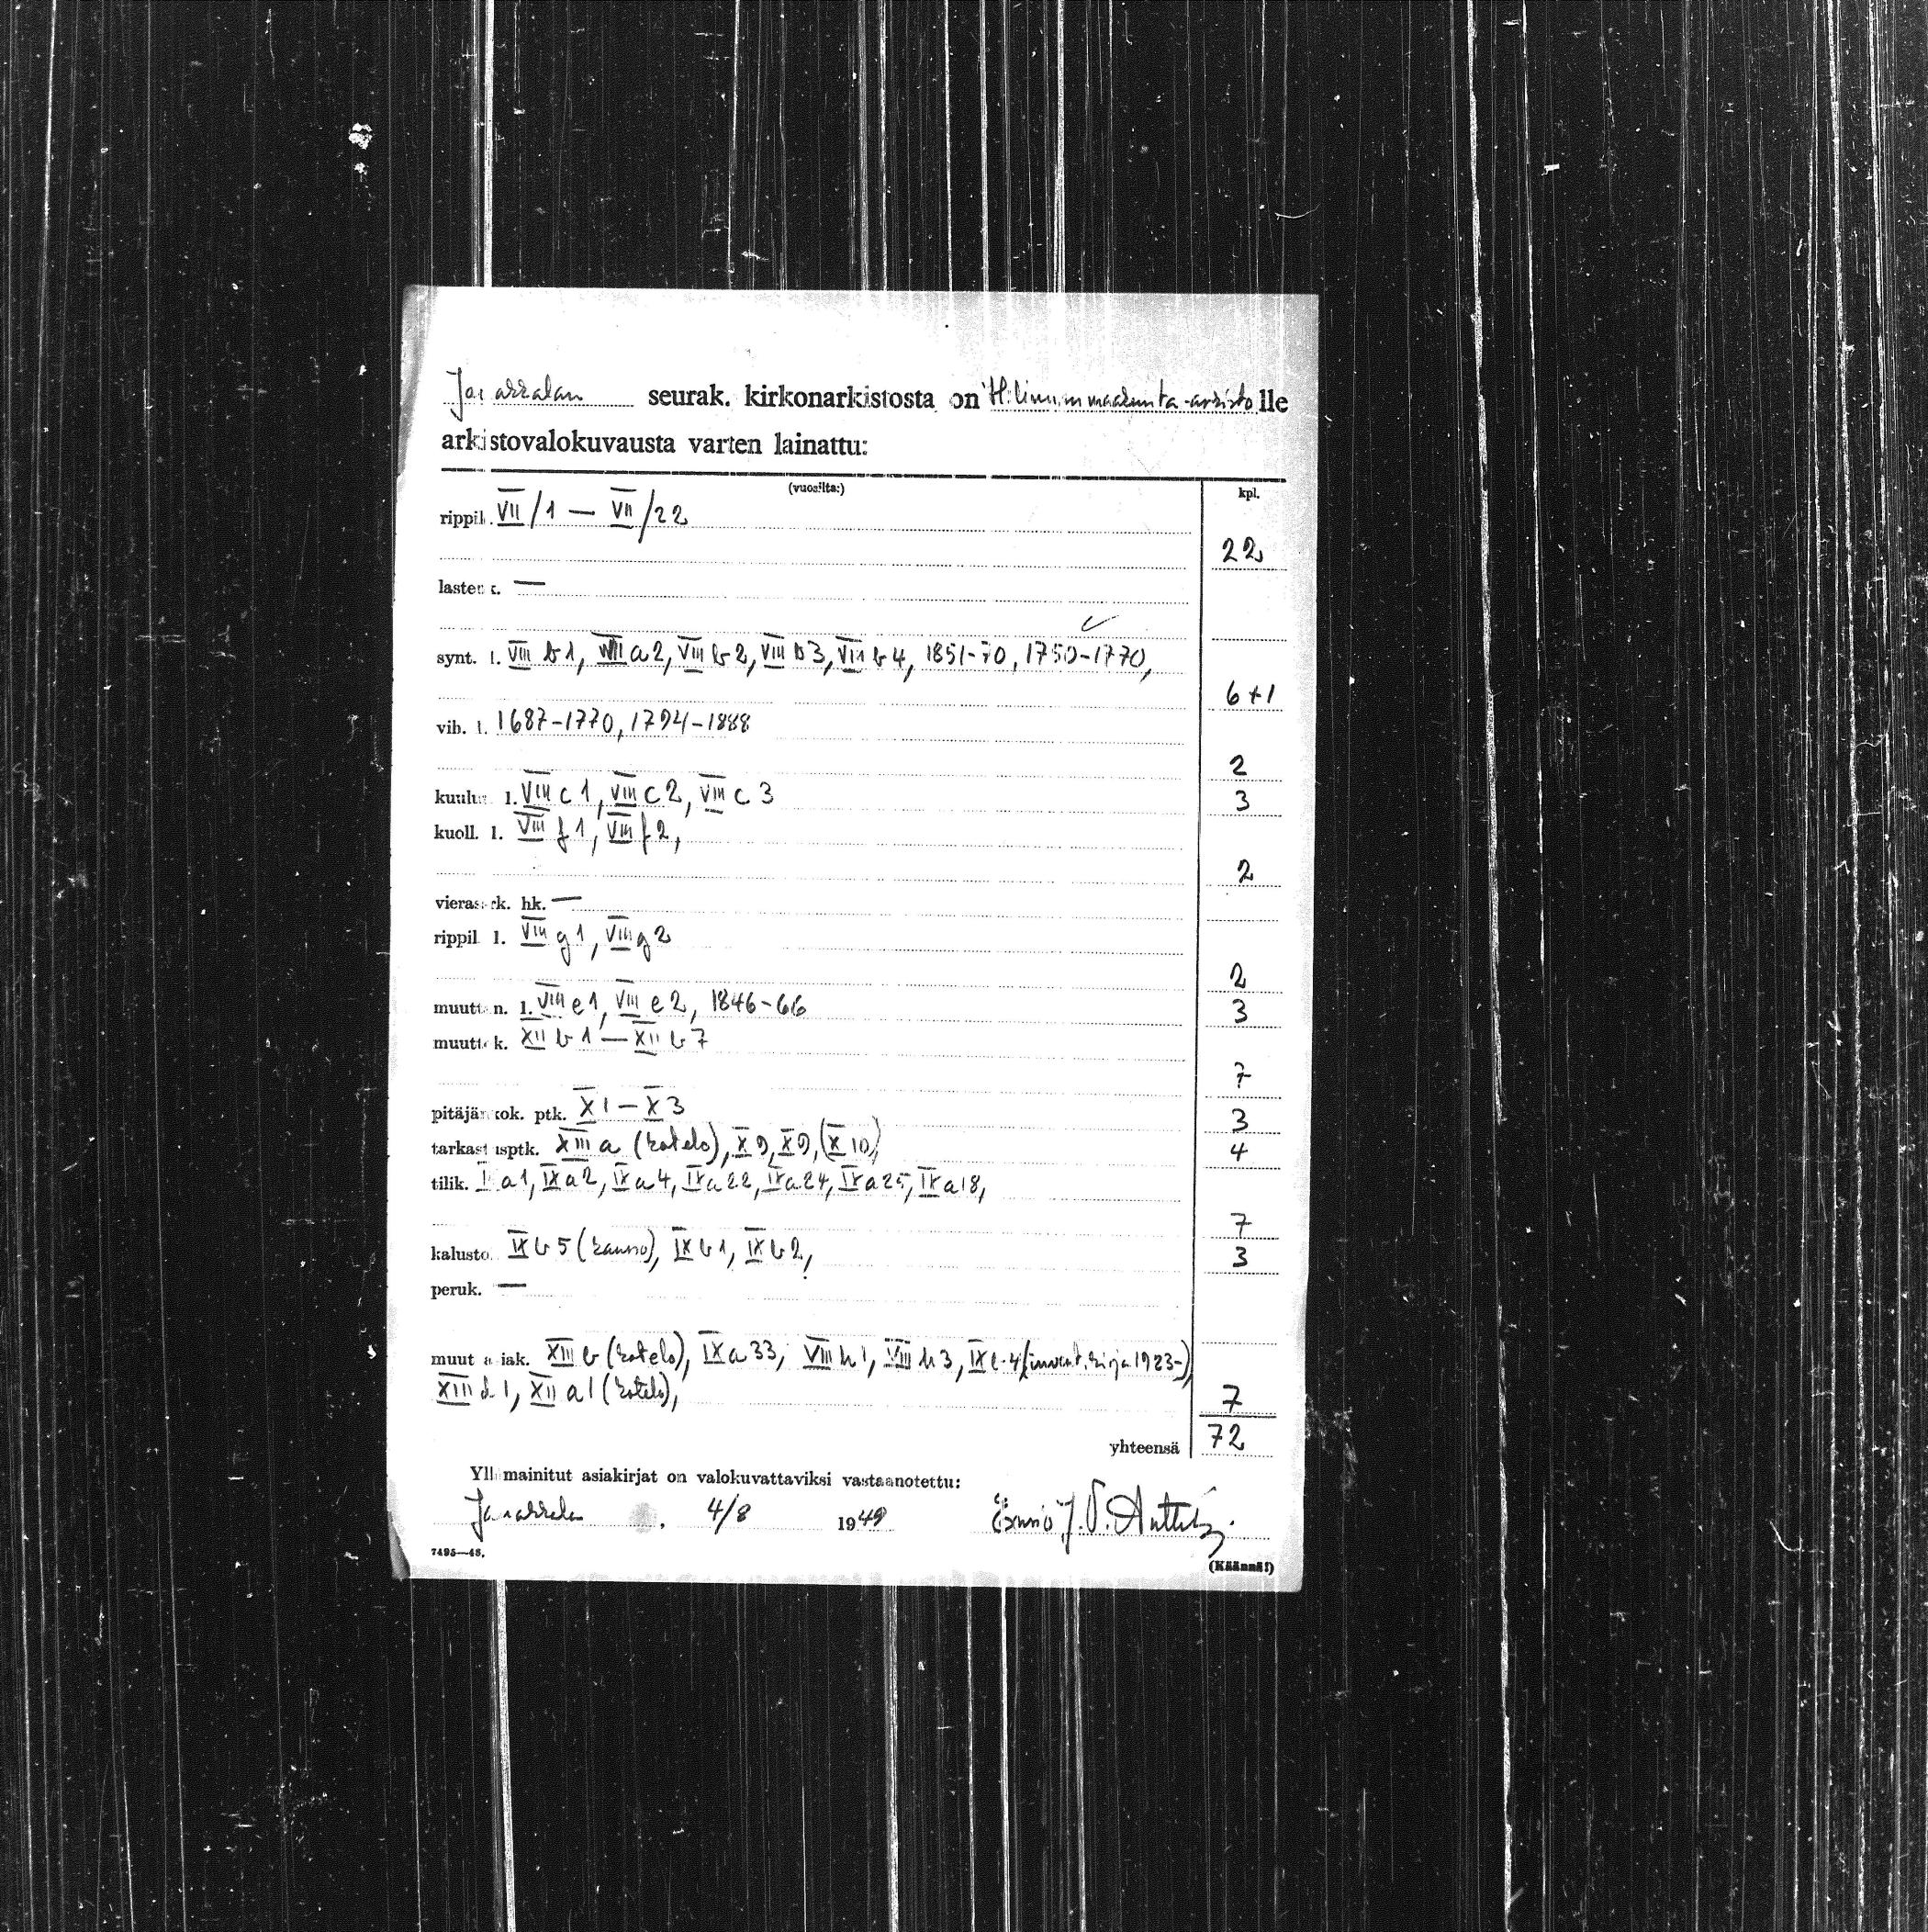 Janakkalan seurak. kirkonarkistosta on Hlinnan maakunta-arkistolle
arkistovalokuvausta varten lainattu:
(vuosilta:) kpl.
rippik. VII/1 — VII/22
22
lastenk. —
synt. l. VIII b1, VIII a2, VIII b2, VIII b3, VIII b4, 1851-70, 1750-1770,
6+1
vih. l. 1687-1770, 1794-1888
2
kuulut. l. VIII c1, VIII c2, VIII c3 3
kuoll. l. VIII f1, VIII f2,
2
vierassrk. hk. —
rippil. l. VIII g1, VIII g2
2
muuttan. l. VIII e1, VIII e2, 1846-66 3
muuttok. XII b1 — XII b7
7
pitäjänkok. ptk. X1 — X3 3
tarkastusptk. XIII a (kotelo), X9, X9, (X10) 4
tilik. IX a1, IX a2, IX a4, IX a22, IX a24, IX a25, IX a18,
7
kalusto. IX b5 (kansio), IX b1, IX b2, 3
peruk. —
muut asiak. XIII b (kotelo), IX a33, VIII h1, VIII h3, IX (invent. kirja 1923-),
XIII d1, XII a1 (kotelo), 7
yhteensä 72
Yllämainitut asiakirjat on valokuvattaviksi vastaanotettu:
Janakkala . 4/8 1949
7495—48. (Käännä!)